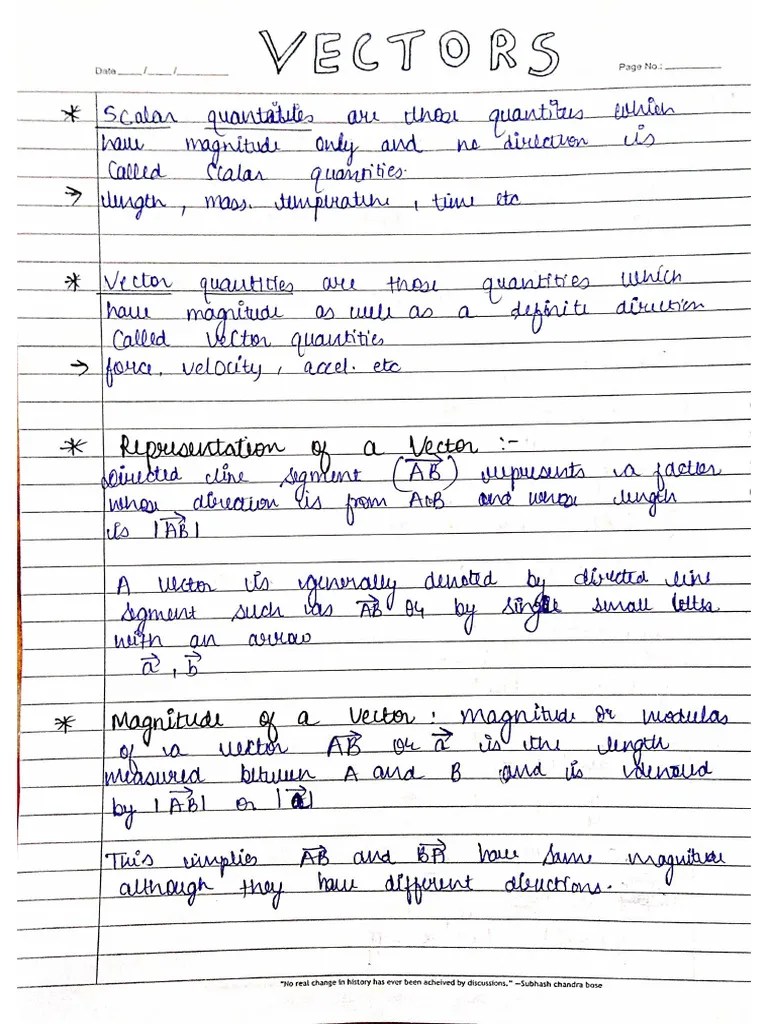 VECTORS
Date ___/___/______ Page No.: ________
* Scalar quantatites are those quantites which
have magnitude only and no direction is
Called Scalar quantities.
→ length, mass. temperature, time etc
* Vector quantities are those quantities which
have magnitude as well as a definite direction
Called Vector quantities
→ force, velocity, accel. etc
* Representation of a Vector :-
Directed line segment (AB→) represents a factor
whose direction is from A to B and whose length
is |AB→|
A vector is generally denoted by directed line
segment such as AB→ or by single small letter
with an arrow
a→, b→
* Magnitude of a Vector : Magnitude or modulas
of a vector AB→ or a→ is the length
measured between A and B and is denoted
by |AB→| or |a→|
This implies AB→ and BA→ have same magnitude
although they have different directions.
"No real change in history has ever been acheived by discussions." –Subhash chandra bose